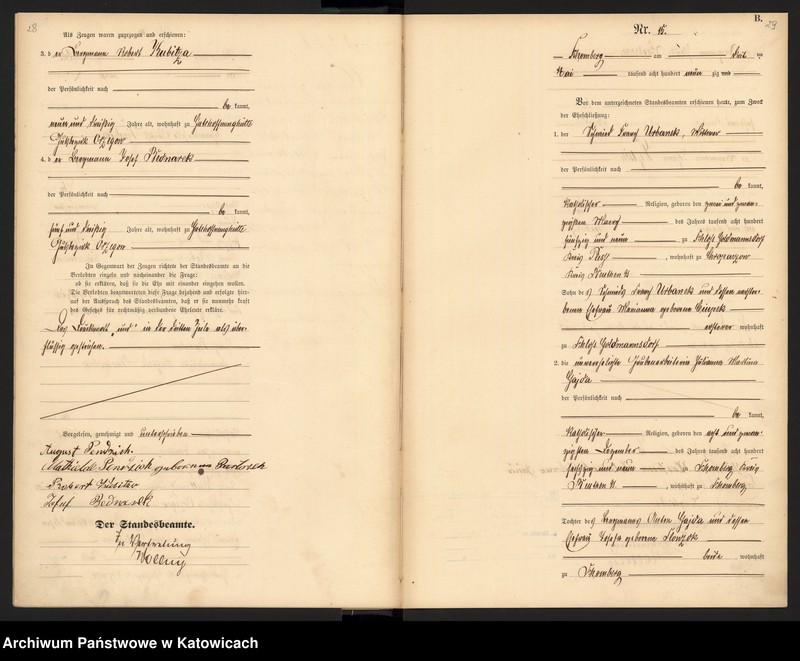 28
Als Zeugen waren zugezogen und erschienen:
3. der Bergmann Robert Kubitza
der Persönlichkeit nach
be kannt,
neun und dreißig Jahre alt, wohnhaft zu Gotthelfhoffnungshütte
Gutsbezirk Orzegow
4. der Bergmann Josef Bednarek
der Persönlichkeit nach
be kannt,
fünf und dreißig Jahre alt, wohnhaft zu
Gutsbezirk Orzegow
In Gegenwart der Zeugen richtete der Standesbeamte an die
Verlobten einzeln und nacheinander die Frage:
ob sie erklären, daß sie die Ehe mit einander eingehen wollen.
Die Verlobten beantworteten diese Frage bejahend und erfolgte hier-
auf der Ausspruch des Standesbeamten, daß er sie nunmehr kraft
des Gesetzes für rechtmäßig verbundene Eheleute erkläre.
Das Druckwort „und“ in der dritten Zeile als über-
flüssig gestrichen.
Vorgelesen, genehmigt und unterschrieben
August
Mathilde geborene
Robert Kubitza
Josef Bednarek
Der Standesbeamte.
In Vertretung
B.
29
Nr. 15.
Schomberg am drei ten
Mai tausend acht hundert neun zig und
Vor dem unterzeichneten Standesbeamten erschienen heute, zum Zweck
der Eheschließung:
1. der Schmied Franz Urbanek, Wittwer
der Persönlichkeit nach
be kannt,
katholischer Religion, geboren den zwei und zwan-
zigsten März des Jahres tausend acht hundert
fünfzig und neun zu Schloß Goldmannsdorf
Kreis Pless, wohnhaft zu Chropaczow
Kreis Beuthen O/S
Sohn des Schmieds Franz Urbanek und dessen verstor-
benen Ehefrau Marianna geborene
ersterer wohnhaft
zu Schloß Goldmannsdorf
2. die unverehelichte Grubenarbeiterin Julianna Martina
Gajda
der Persönlichkeit nach
be kannt,
katholischer Religion, geboren den acht und zwan-
zigsten Dezember des Jahres tausend acht hundert
sechszig und neun zu Schomberg Kreis
Beuthen O/S, wohnhaft zu Schomberg
Tochter des Bergmanns Anton Gajda und dessen
Ehefrau Josefa geborene
beide wohnhaft
zu Schomberg
Archiwum Państwowe w Katowicach